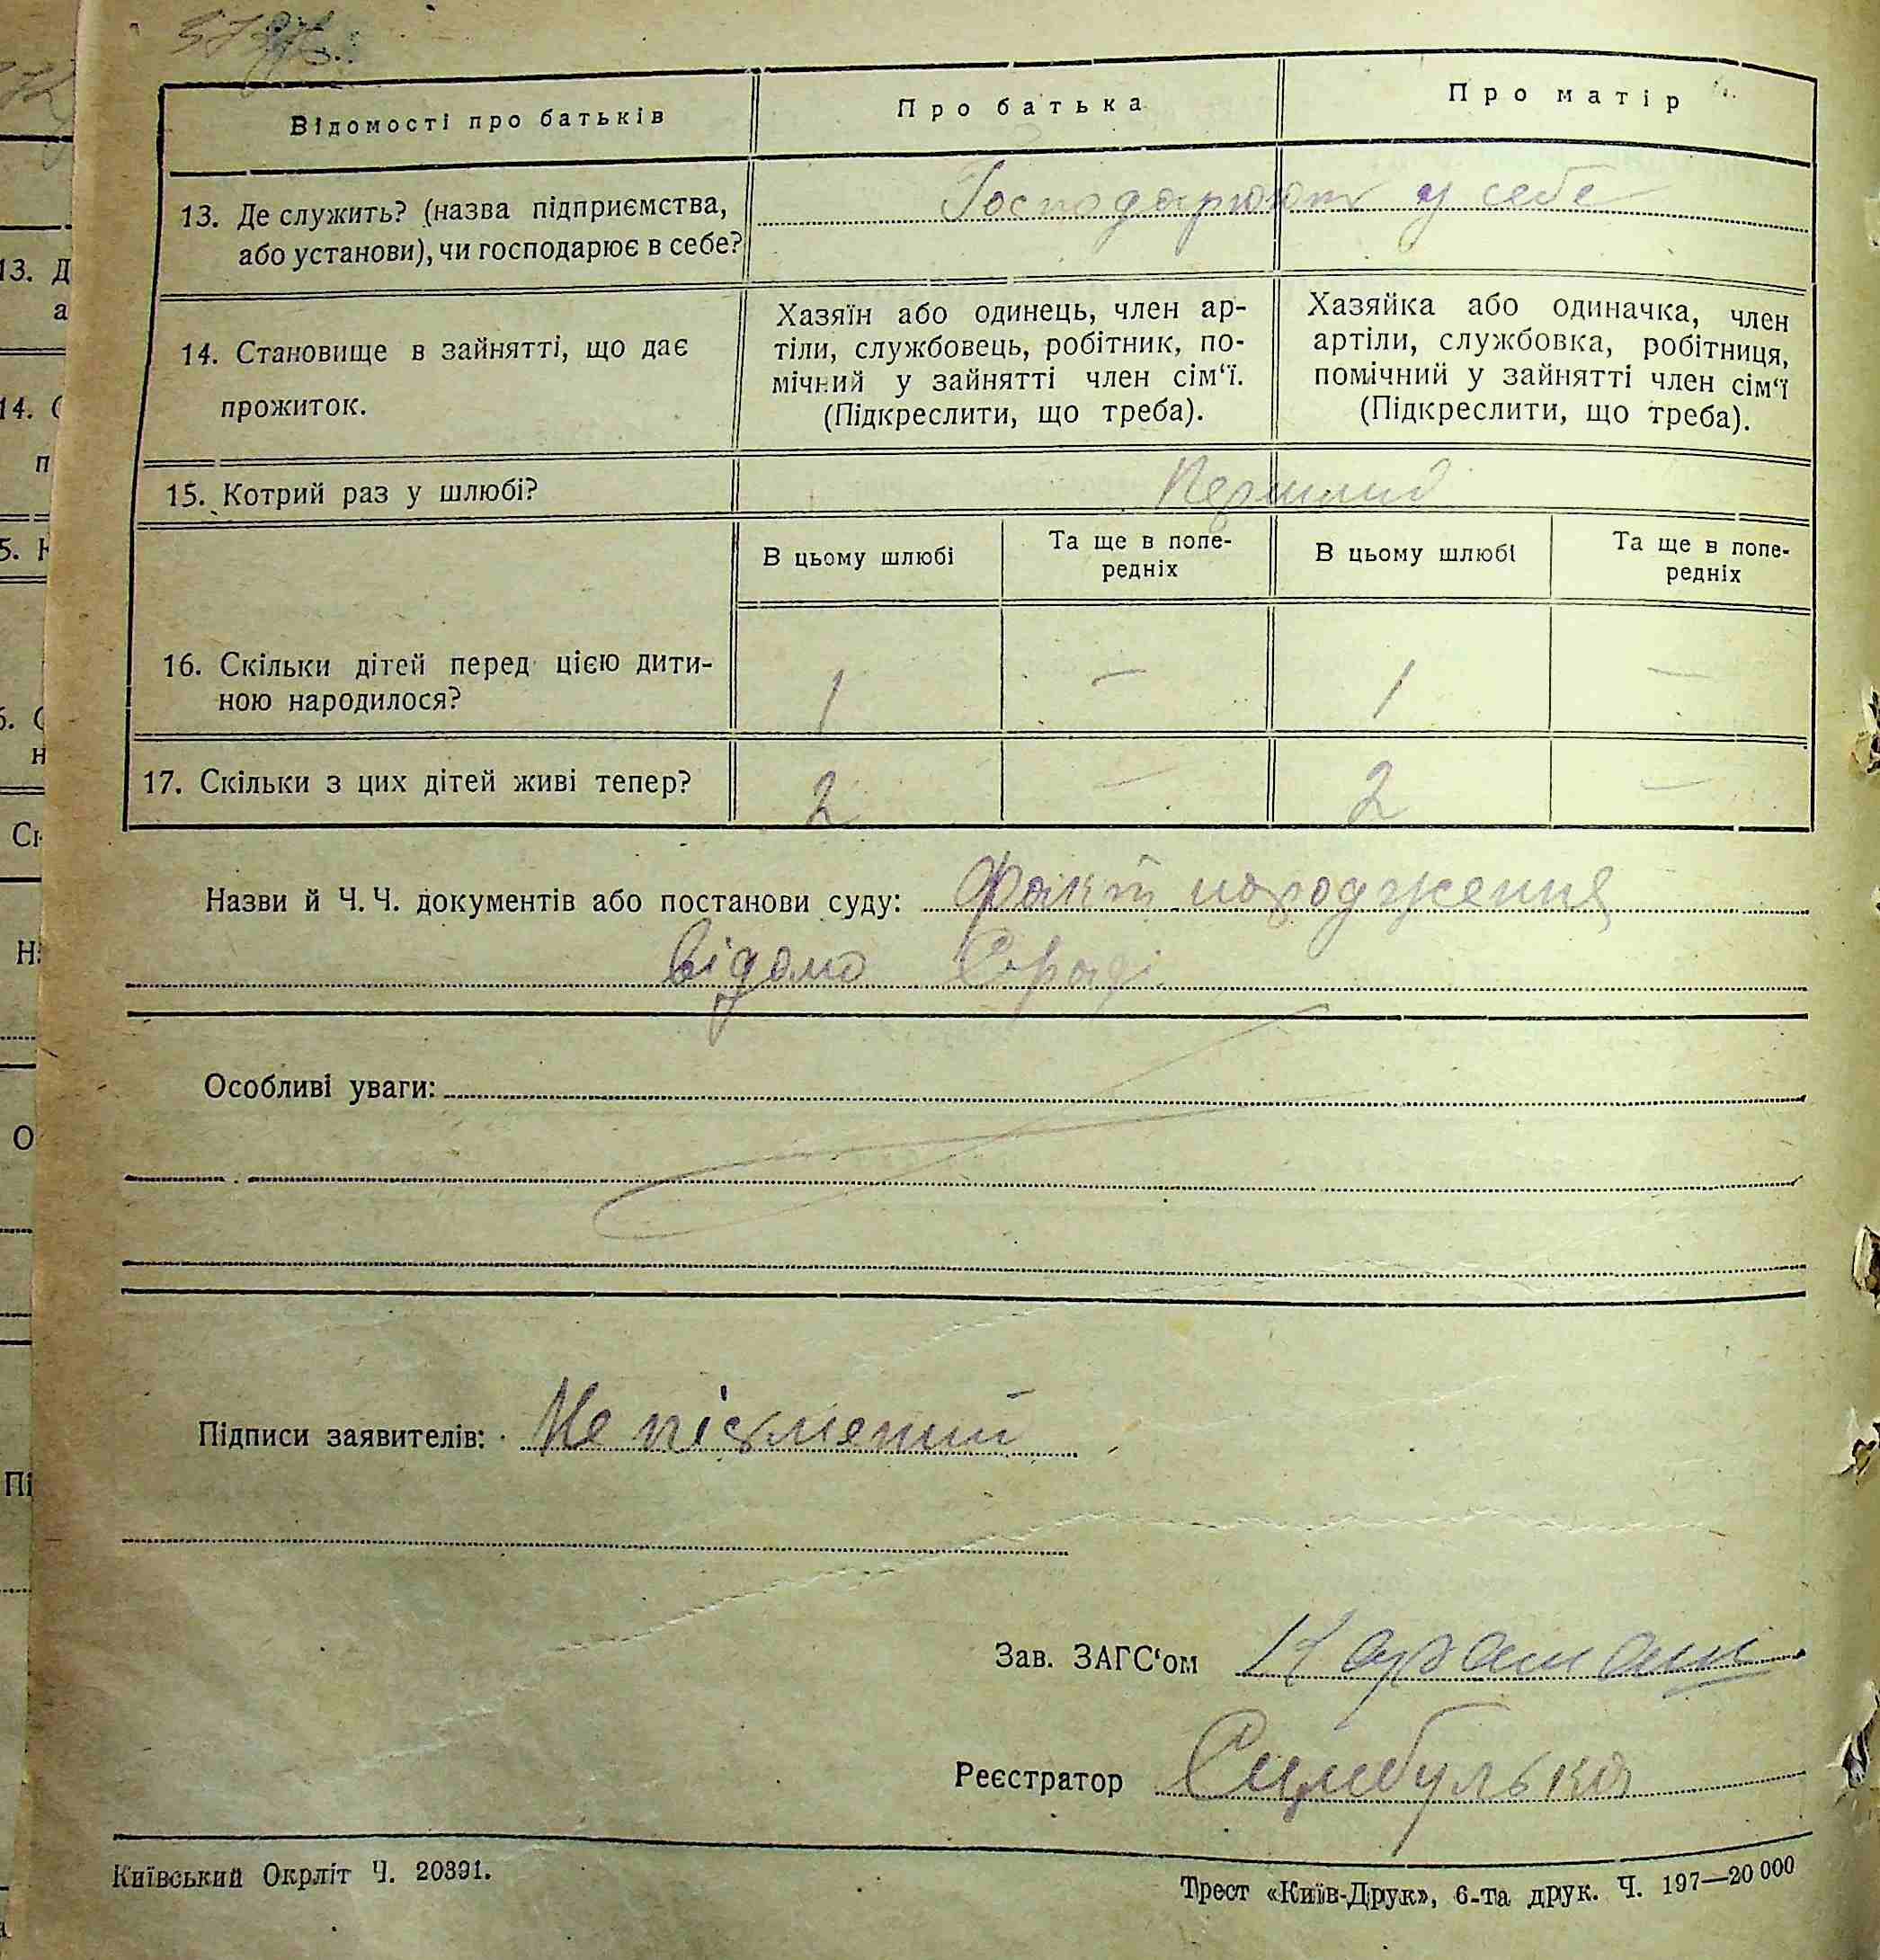 Відомості про батьків
Про батька
Про матір
13. Де служить? (назва підприємства,
або установи), чи господарює в себе?
Господарюют у себе
14. Становище в зайнятті, що дає
прожиток.
Хазяїн або одинець, член ар-
тіли, службовець, робітник, по-
мічний у зайнятті член сім‘ї.
(Підкреслити, що треба).
Хазяйка або одиначка, член
артіли, службовка, робітниця,
помічний у зайнятті член сім‘ї
(Підкреслити, що треба).
15. Котрий раз у шлюбі?
Перший
В цьому шлюбі
Та ще в попе-
редніх
В цьому шлюбі
Та ще в попе-
редніх
16. Скільки дітей перед цією дити-
ною народилося?
1 — 1 —
17. Скільки з цих дітей живі тепер?
2 — 2 —
Назви й Ч. Ч. документів або постанови суду: Факт народження
відомо С-раді
Особливі уваги:
Підписи заявителів: Не пісьмений
Зав. ЗАГС‘ом
Реєстратор
Київський Окрліт Ч. 20391.
Трест «Київ-Друк», 6-та друк. Ч. 197—20 000